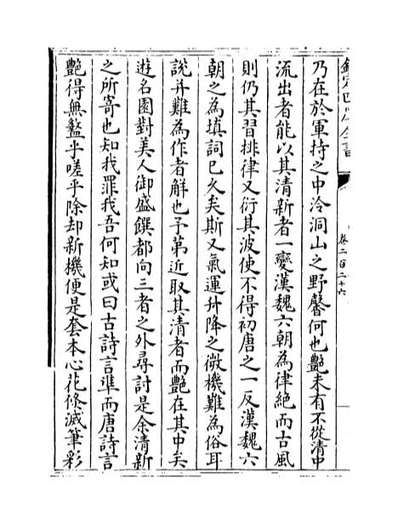 欽定四庫全書
卷二百二十六
乃在於軍持之中泠洞山之野馨何也艶未有不從清中
流出者能以其清新者一變漢魏六朝為律絶而古風
則仍其習排律又衍其波使不得初唐之一反漢魏六
朝之為填詞已久矣斯又氣運升降之微機難為俗耳
說并難為作者解也予第近取其清者而艶在其中矣
遊名園對美人御盛饌都向三者之外尋討是余清新
之所寄也知我罪我吾何知或曰古詩言準而唐詩言
艶得無盭乎嗟乎除却新機便是套本心花條滅筆彩